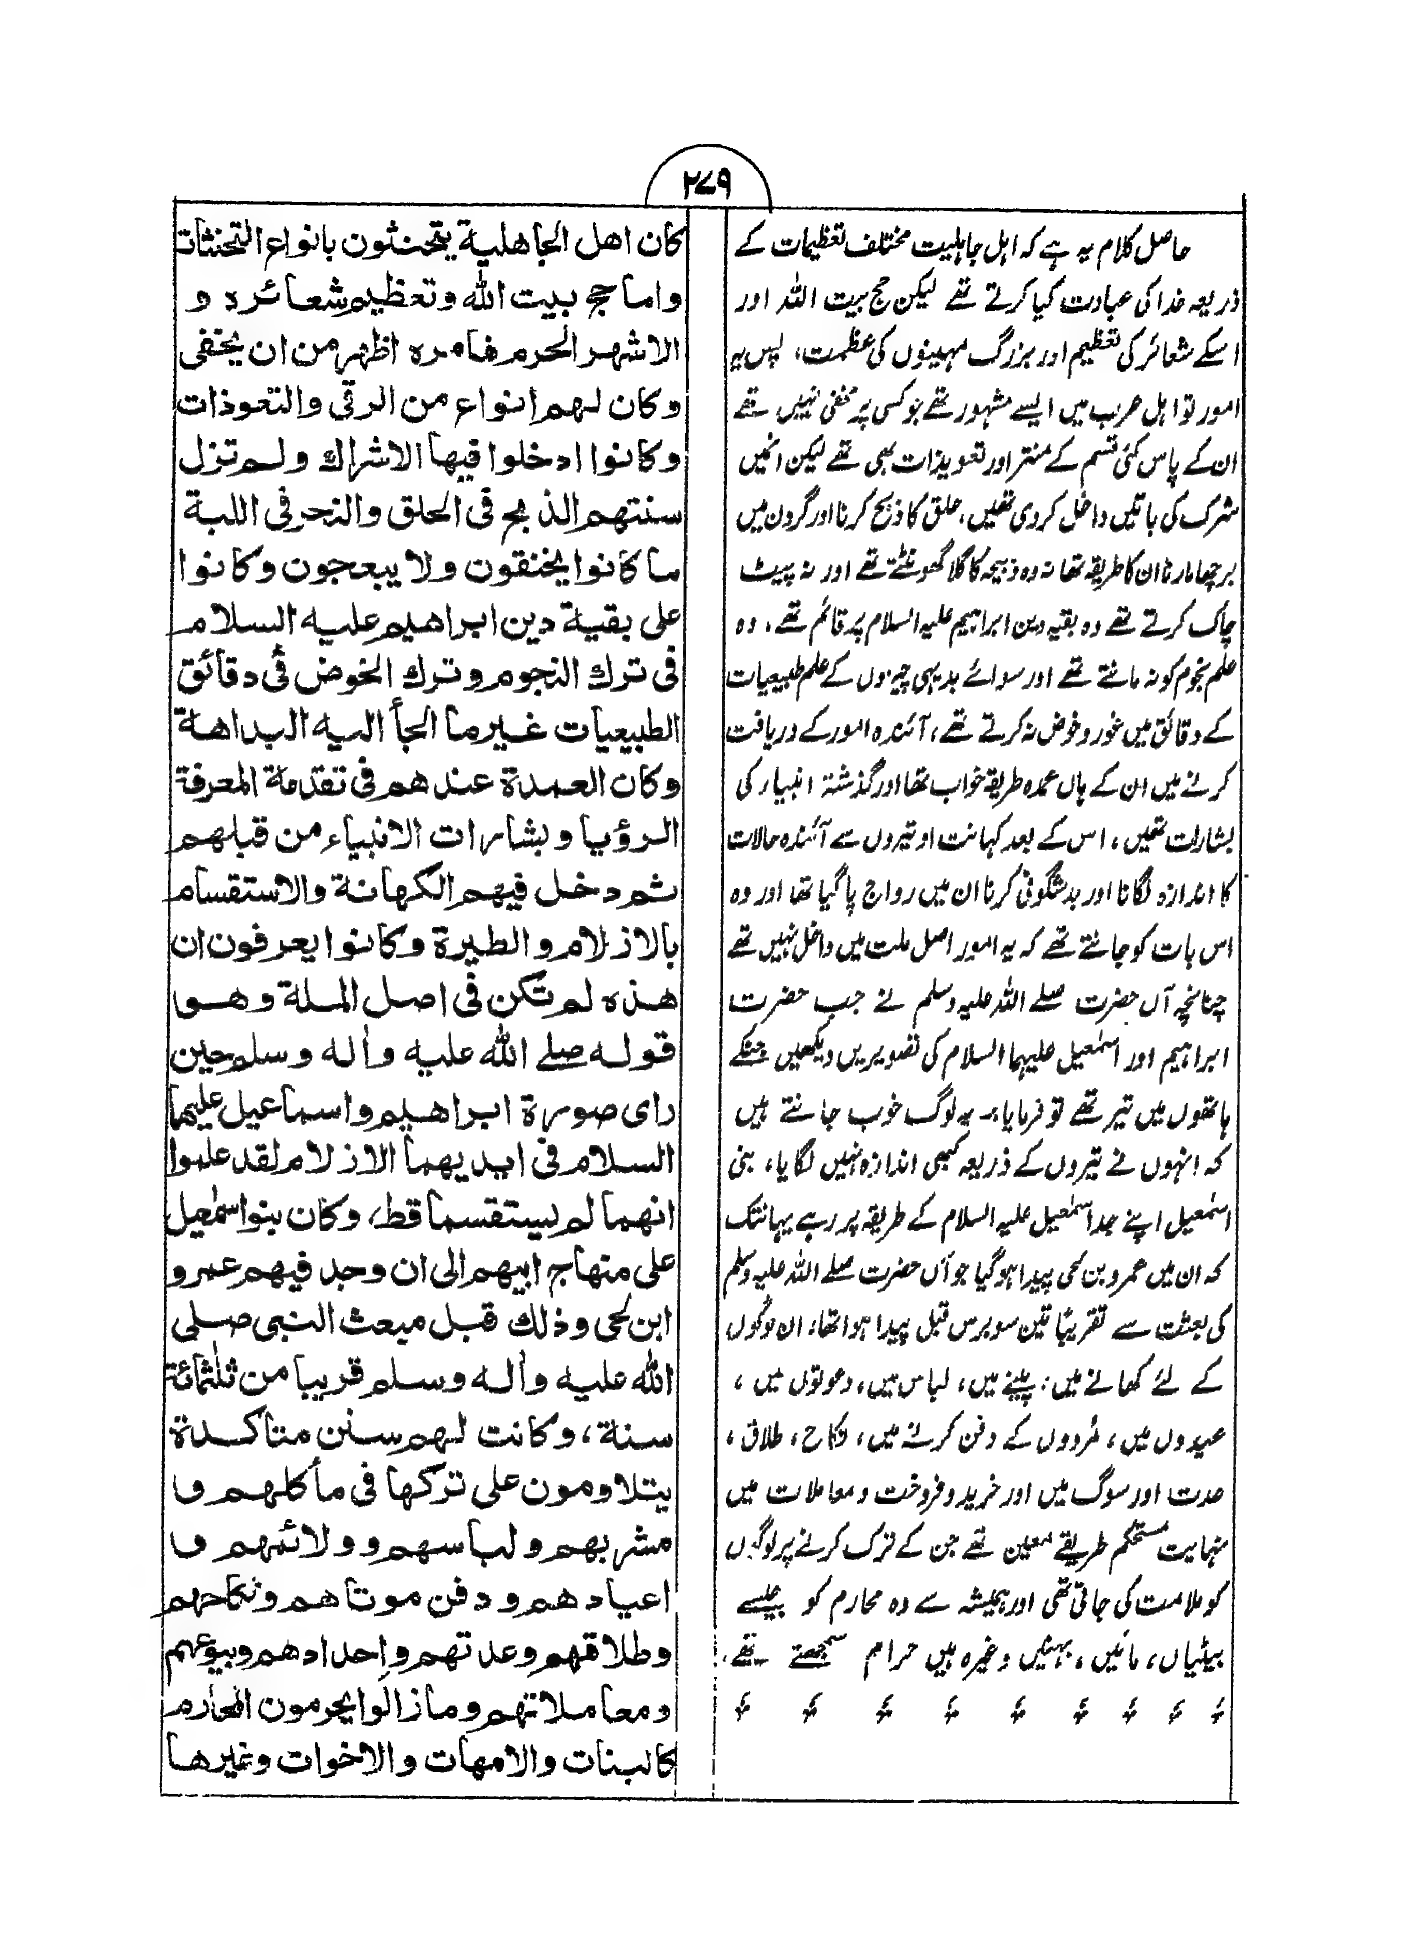 ۲۷۹
حاصل کلام یہ ہے کہ اہل جاہلیت مختلف تعظیمات کے
ذریعہ خدا کی عبادت کیا کرتے تھے لیکن حج بیت اللہ اور
اسکے شعائر کی تعظیم اور بزرگ مہینوں کی عظمت، پس یہ
امور تو اہل عرب میں ایسے مشہور تھے جو کسی پر مخفی نہیں تھے
ان کے پاس کئی قسم کے منتر اور تعویذات بھی تھے لیکن انمیں
شرک کی باتیں داخل کر دی تھیں، حلق کا ذبح کرنا اور گردن میں
برچھا مارنا ان کا طریقہ تھا نہ وہ ذبیحہ کا گلا گھونٹتے تھے اور نہ پیٹ
چاک کرتے تھے وہ بقیہ دین ابراہیم علیہ السلام پر قائم تھے، وہ
علم نجوم کو نہ مانتے تھے اور سوائے بدیہی چیزوں کے علم طبیعیات
کے دقائق میں غور و خوض نہ کرتے تھے، آئندہ امور کے دریافت
کرنے میں ان کے ہاں عمدہ طریقہ خواب تھا اور گذشتہ انبیاء کی
بشارات تھیں، اس کے بعد کہانت او تیروں سے آئندہ حالات
کا اندازہ لگانا اور بدشگونی کرنا ان میں رواج پا گیا تھا اور وہ
اس بات کو جانتے تھے کہ یہ امور اصل ملت میں داخل نہیں تھے
چنانچہ آں حضرت صلے اللہ علیہ وسلم نے جب حضرت
ابراہیم اور اسمٰعیل علیہما السلام کی تصویریں دیکھیں جنکے
ہاتھوں میں تیر تھے تو فرمایا:۔ یہ لوگ خوب جانتے ہیں
کہ انہوں نے تیروں کے ذریعہ کبھی اندازہ نہیں لگایا، بنی
اسمٰعیل اپنے جد اسمٰعیل علیہ السلام کے طریقہ پر رہے یہانتک
کہ ان میں عمرو بن لحی پیدا ہو گیا جو آں حضرت صلے اللہ علیہ وسلم
کی بعثت سے تقریبًا تین سو برس قبل پیدا ہوا تھا، ان لوگوں
کے لئے کھانے میں، پینے میں، لباس میں، دعوتوں میں،
عیدوں میں، مُردوں کے دفن کرنے میں، نکاح، طلاق،
عدت اور سوگ میں اور خرید و فروخت و معاملات میں
نہایت مستحکم طریقے معین تھے جن کے ترک کرنے پر لوگوں
کو ملامت کی جاتی تھی اور ہمیشہ سے وہ محارم کو جیسے
بیٹیاں، مائیں، بہنیں وغیرہ ہیں حرام سمجھتے تھے،
كان اهل الجاهلية يتحنثون بانواع التحنثات
واما حج بيت الله وتعظيم شعائره و
الاشهر الحرم فامره اظهر من ان يخفى
وكان لهم انواع من الرقى والتعوذات
وكانوا ادخلوا فيها الاشراك ولم تزل
سنتهم الذبح فى الحلق والنحر فى اللبة
ما كانوا يخنقون ولا يبعجون وكانوا
على بقية دين ابراهيم عليه السلام
فى ترك النجوم وترك الخوض فى دقائق
الطبيعيات غير ما الجأ اليه البداهة
وكان العمدة عندهم فى تقدمة المعرفة
الرؤيا وبشارات الانبياء من قبلهم
ثم دخل فيهم الكهانة والاستقسام
بالازلام والطيرة وكانوا يعرفون ان
هذه لم تكن فى اصل الملة وهو
قوله صلے الله عليه واٰله وسلم حين
راى صورة ابراهيم واسماعيل عليهما
السلام فى ايديهما الازلام لقد علموا
انهما لم يستقسما قط، وكان بنو اسمٰعيل
على منهاج ابيهم الى ان وجد فيهم عمرو
ابن لحى وذلك قبل مبعث النبى صلى
الله عليه واٰله وسلم قريبا من ثلٰثمائة
سنة، وكانت لهم سنن متاكدة
يتلاومون على تركها فى مأكلهم و
مشربهم ولباسهم وولائمهم و
اعيادهم ودفن موتاهم ونكاحهم
وطلاقهم وعدتهم واحدادهم وبيوعهم
ومعاملاتهم وما زالوا يحرمون المحارم
كالبنات والامهات والاخوات وغيرها